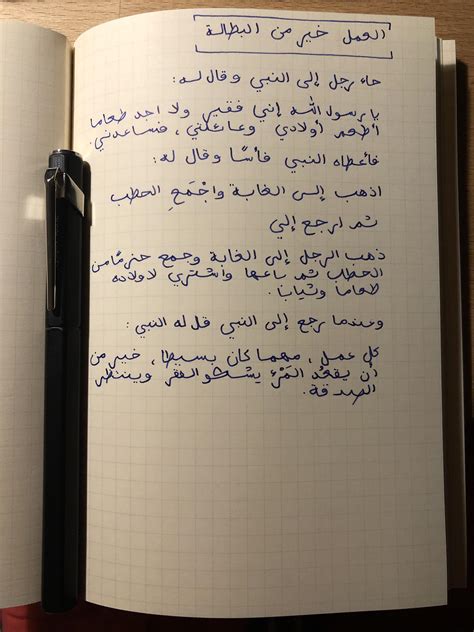 العمل خير من البطالة
جاء رجل إلى النبي وقال له:
يا رسول الله إني فقير ولا اجد طعاما
أطعم أولادي وعائلتي، فساعدني.
فأعطاه النبي فأسًا وقال له:
اذهب إلى الغابة واجْمَعِ الحطب
ثم ارجع إلي
ذهب الرجل إلى الغابة وجمع حزمًا من
الحطب ثم باعها وأشتري لاولاده
طعاما وثيابا.
وعندما رجع إلى النبي قل له النبي:
كل عمل، مهما كان بسيطا، خير من
أن يقعُد المَرْئ يشكو الفقر وينتظر
الصدقة.